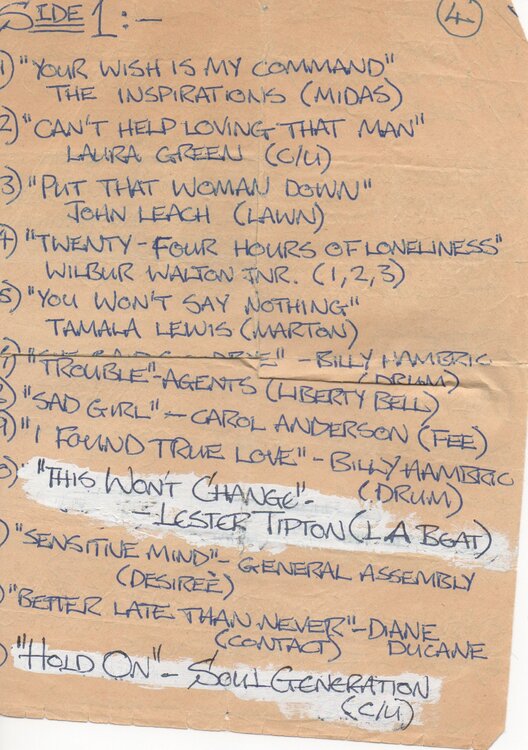 SIDE 1 :-
4
1) "YOUR WISH IS MY COMMAND"
THE INSPIRATIONS (MIDAS)
2) "CAN'T HELP LOVING THAT MAN"
LAURA GREEN (C/U)
3) "PUT THAT WOMAN DOWN"
JOHN LEACH (LAWN)
4) "TWENTY-FOUR HOURS OF LONELINESS"
WILBUR WALTON JNR. (1,2,3)
5) "YOU WON'T SAY NOTHING"
TAMALA LEWIS (MARTON)
" - BILLY HAMBRIC
(DRUM)
7) "TROUBLE"-AGENTS (LIBERTY BELL)
"SAD GIRL" - CAROL ANDERSON (FEE)
9) "I FOUND TRUE LOVE" - BILLY HAMBRIC
(DRUM)
"THIS WON'T CHANGE"-
- LESTER TIPTON (L.A BEAT)
) "SENSITIVE MIND" - GENERAL ASSEMBLY
(DESIREÈ)
) "BETTER LATE THAN NEVER" - DIANE
(CONTACT) DUCANE
) "HOLD ON" - SOUL GENERATION
(C/U)